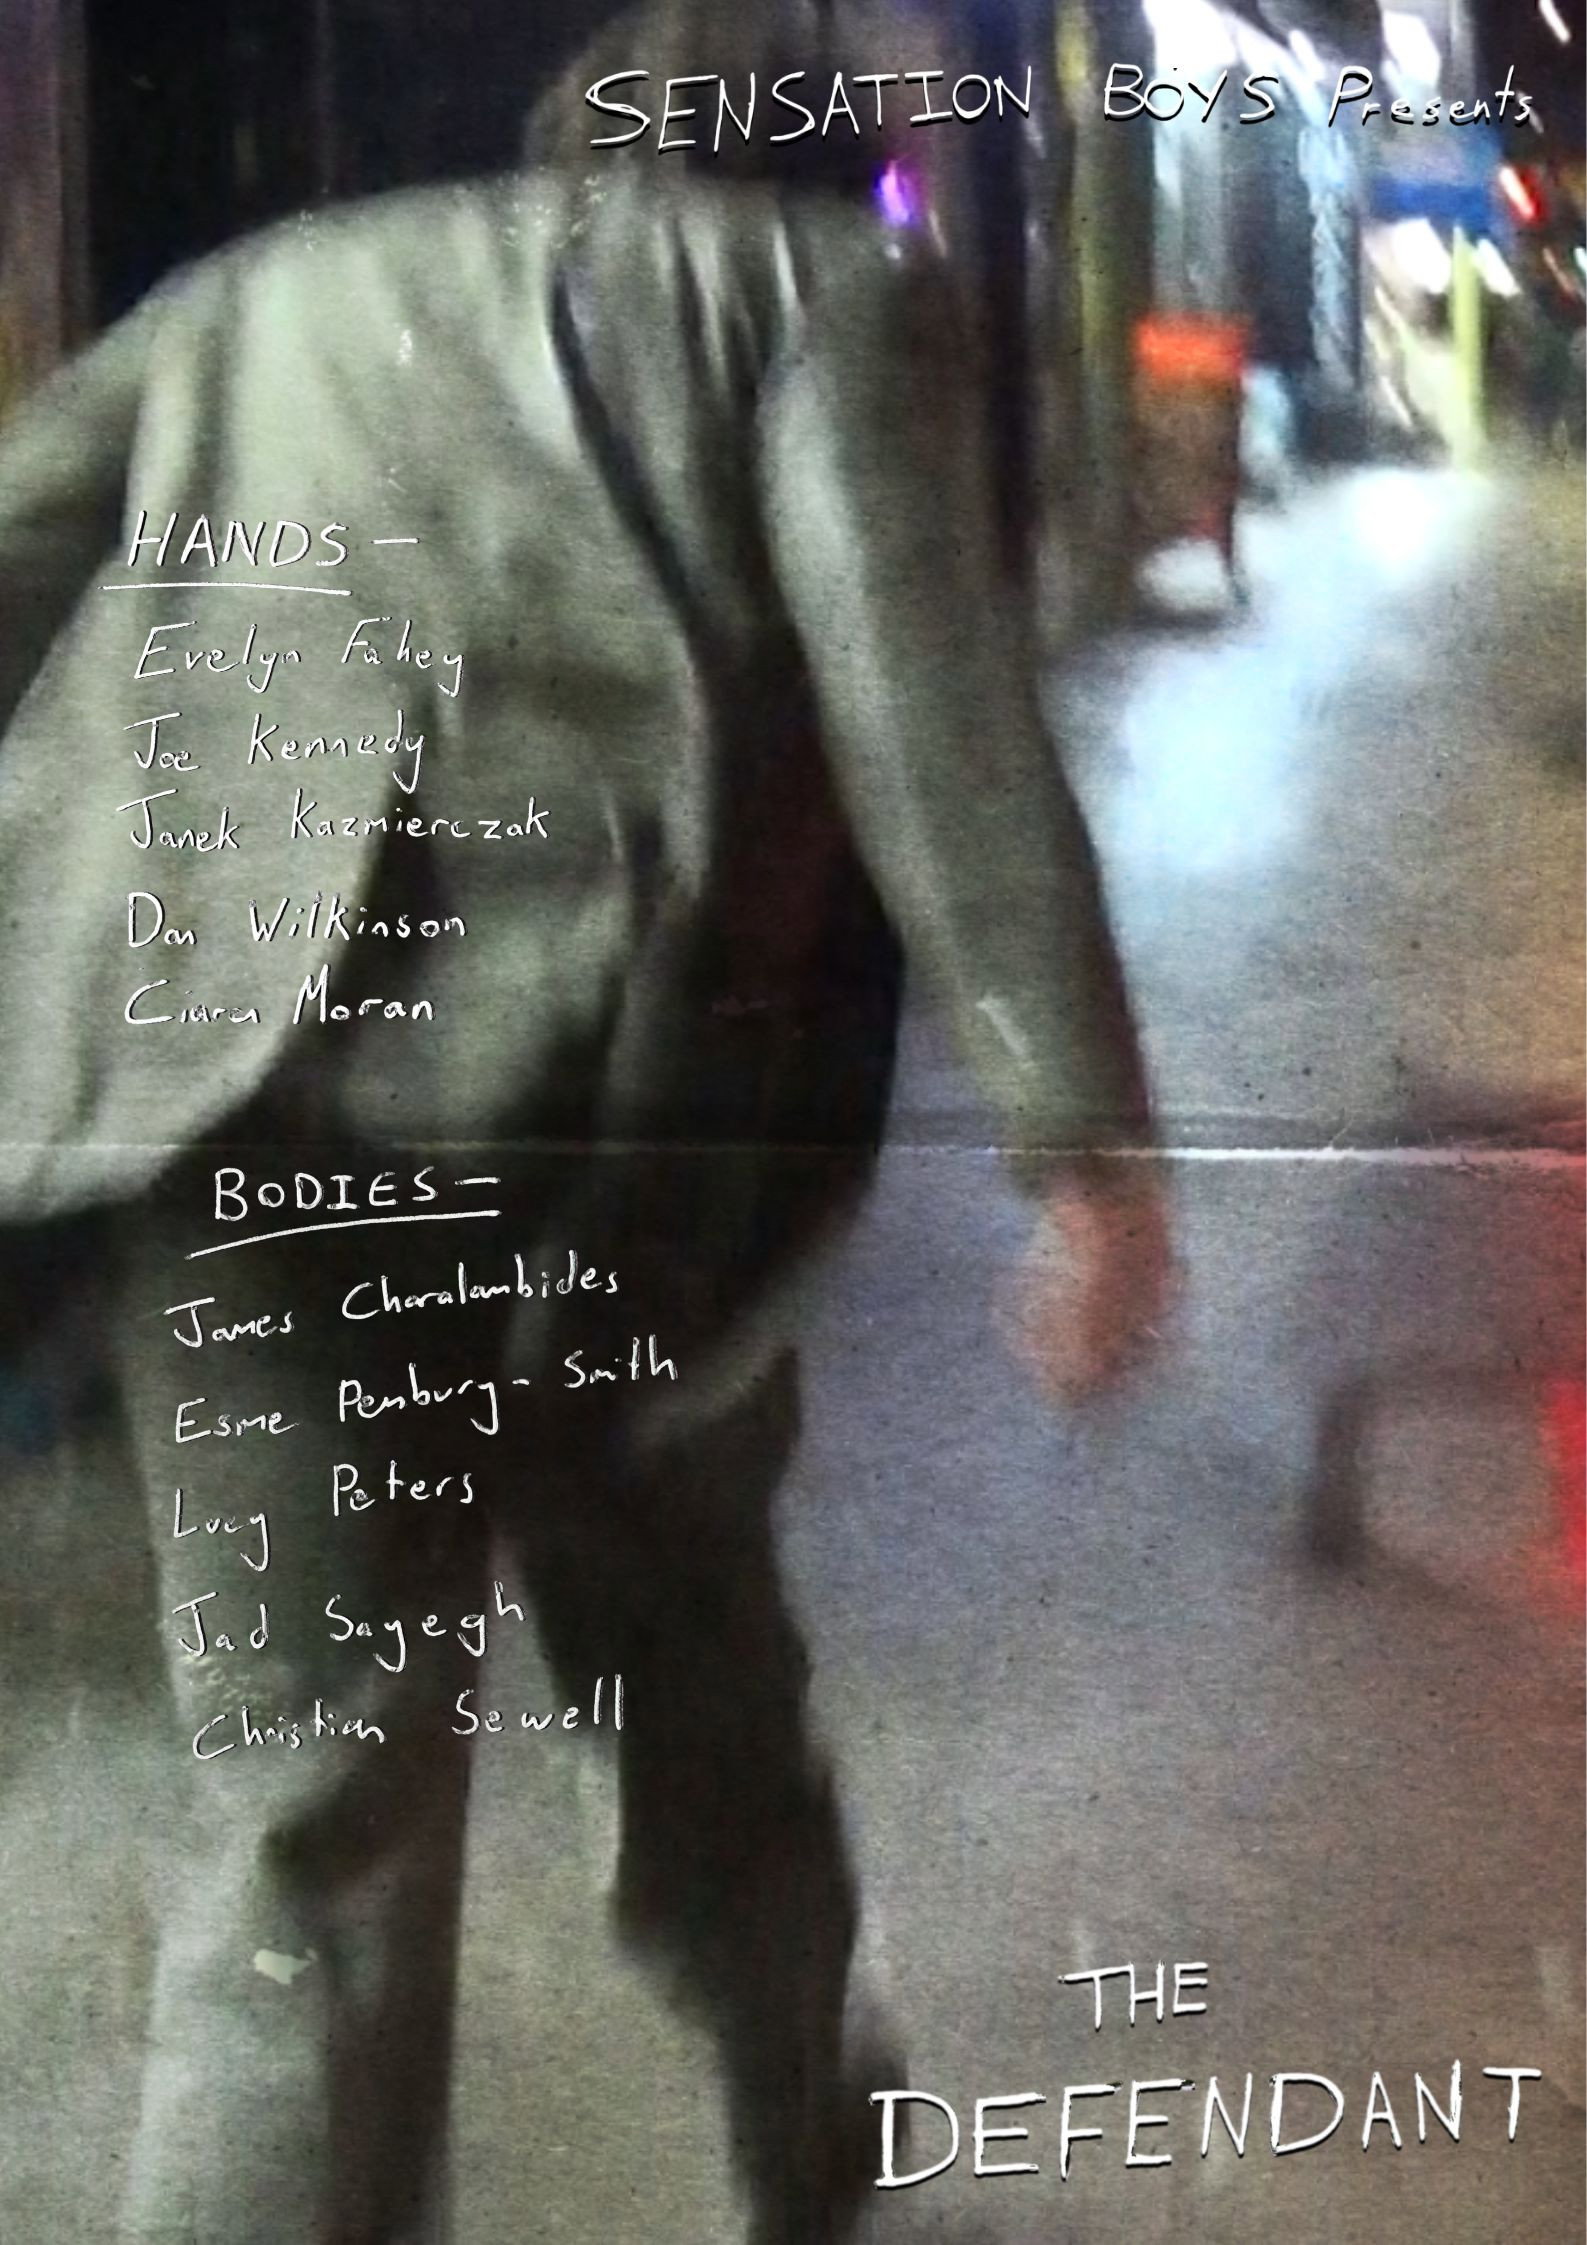 SENSATION BOYS Presents
HANDS -
Evelyn Fahey
Joe Kennedy
Janek Kazmierczak
Dan Wilkinson
Ciara Moran
BODIES -
James Charalambides
Esme Penbury-Smith
Lucy Peters
Jad Sayegh
Christian Sewell
THE
DEFENDANT